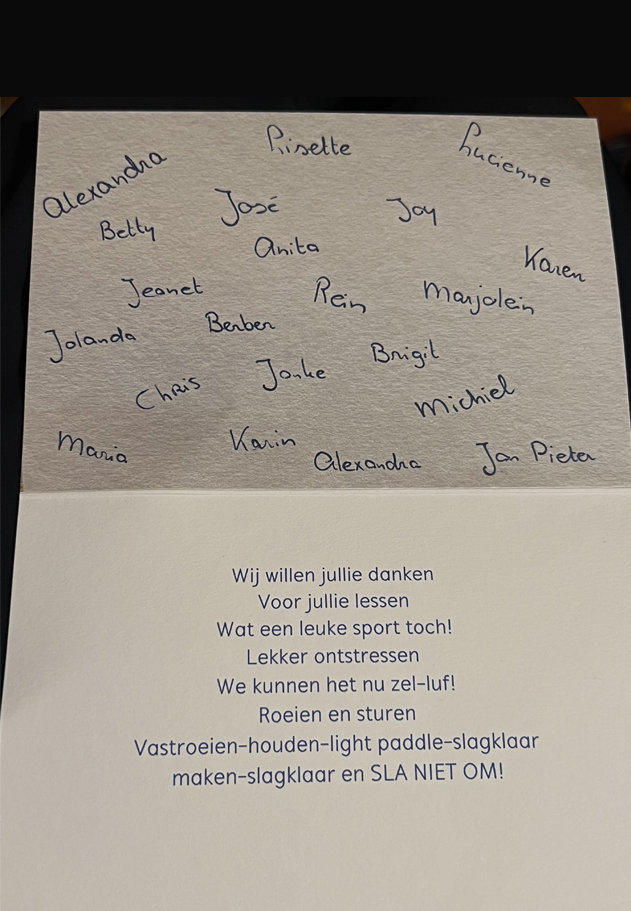 Alexandra
Risette
Lucienne
Betty
José
Joy
Anita
Karen
Jeanet
Rein
Marjolein
Jolanda
Berber
Brigit
Chris
Janke
Michiel
Maria
Karin
Alexandra
Jan Pieter
Wij willen jullie danken
Voor jullie lessen
Wat een leuke sport toch!
Lekker ontstressen
We kunnen het nu zel-luf!
Roeien en sturen
Vastroeien-houden-light paddle-slagklaar
maken-slagklaar en SLA NIET OM!